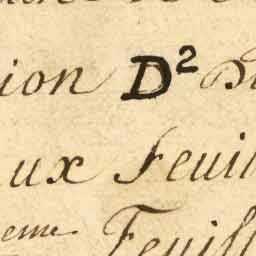 ion D²
ux Feuil
eme Feuill